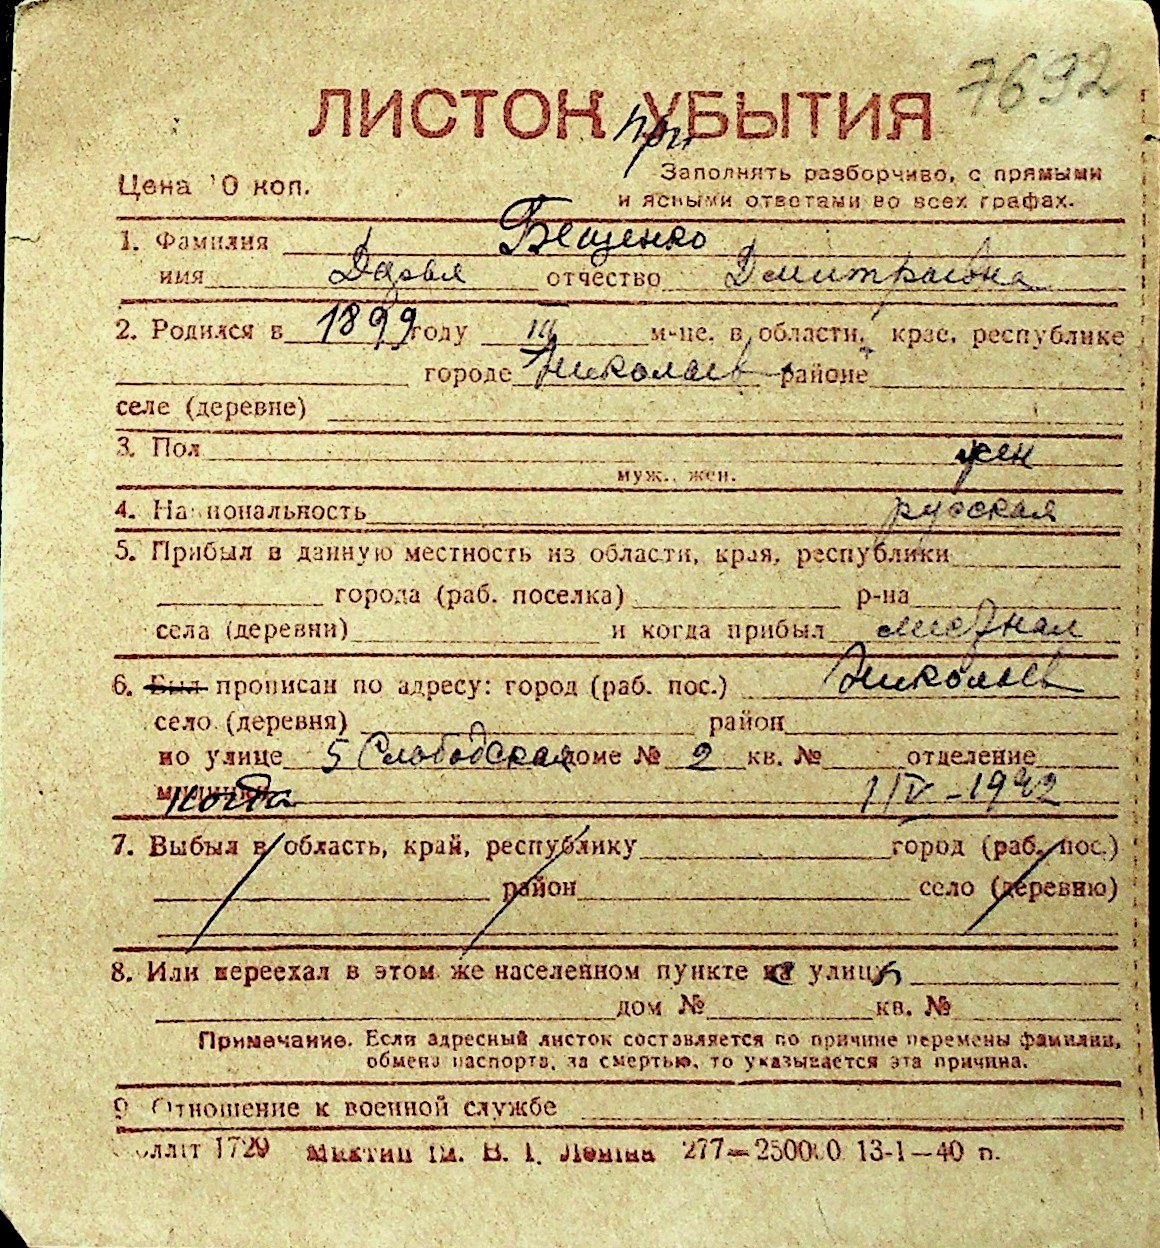 7692
ЛИСТОК при УБЫТИЯ
Цена 0 коп.
Заполнять разборчиво, с прямыми
и ясными ответами во всех графах.
1. Фамилия Бещенко
имя Дарья отчество Дмитриевна
2. Родился в 1899 году III м-це. в области, крае, республике
городе Николаев районе
селе (деревне)
3. Пол жен
муж., жен.
4. Национальность русская
5. Прибыл в данную местность из области, края, республики
города (раб. поселка) р-на
села (деревни) и когда прибыл
6. Был прописан по адресу: город (раб. пос.) Николаев
село (деревня) район
по улице 5 Слободская доме № 2 кв. № отделение
милиции когда 1/IV-1942
7. Выбыл в область, край, республику город (раб. пос.)
район село (деревню)
8. Или переехал в этом же населенном пункте улицы
дом № кв. №
Примечание. Если адресный листок составляется по причине перемены фамилии,
обмена паспорта, за смертью, то указывается эта причина.
9. Отношение к военной службе
1729 ім. В. І. Леніна 277—250000 13-1—40 п.